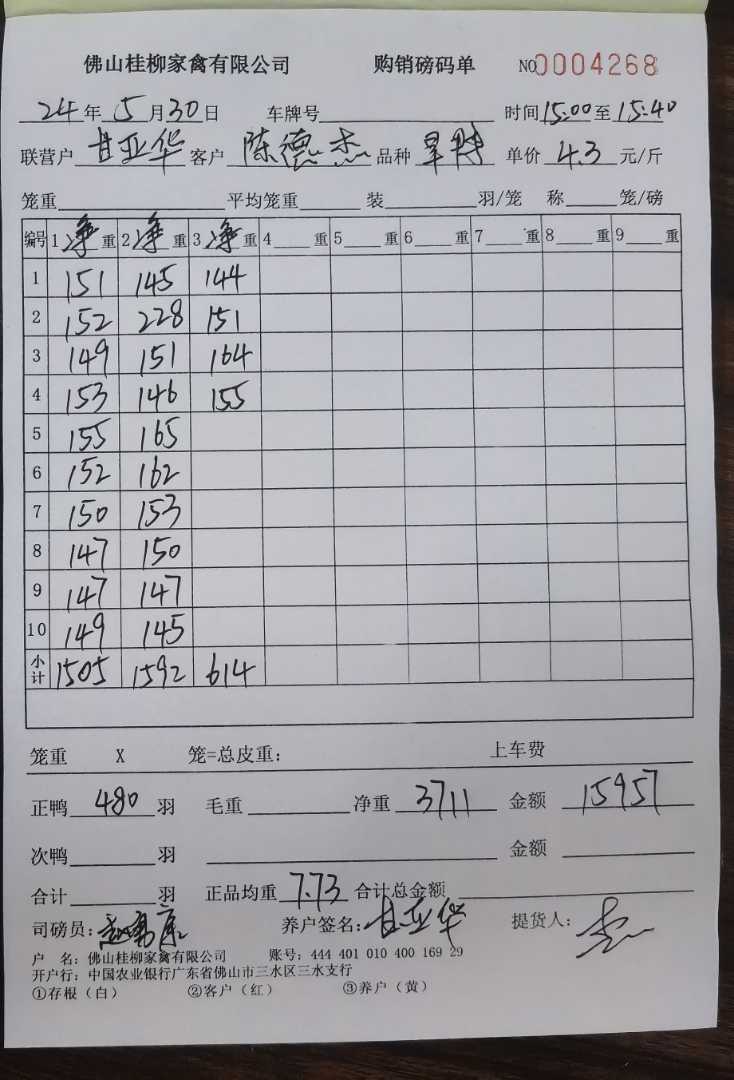 佛山桂柳家禽有限公司 购销磅码单 NO0004268
24年5月30日 车牌号 时间15:00至15:40
联营户 甘亚华 客户 陈德杰 品种 单价 4.3 元/斤
笼重 平均笼重 装 羽/笼 称 笼/磅
编号 1净重 2净重 3净重 4 重 5 重 6 重 7 重 8 重 9 重
1 151 145 144
2 152 228 151
3 149 151 164
4 153 146 155
5 155 165
6 152 162
7 150 153
8 147 150
9 147 147
10 149 145
小计 1505 1592 614
笼重 X 笼=总皮重: 上车费
正鸭 480 羽 毛重 净重 3711 金额 15957
次鸭 羽 金额
合计 羽 正品均重 7.73 合计总金额
司磅员: 养户签名: 甘亚华 提货人: 杰
户 名: 佛山桂柳家禽有限公司 账号: 444 401 010 400 169 29
开户行: 中国农业银行广东省佛山市三水区三水支行
①存根(白) ②客户(红) ③养户(黄)